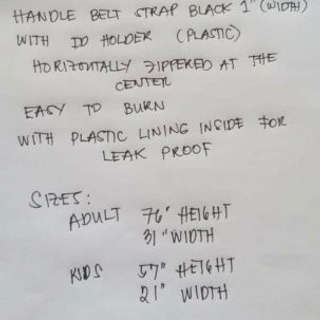 HANDLE BELT STRAP BLACK 1" (WIDTH)
WITH ID HOLDER (PLASTIC)
HORIZONTALLY ZIPPERED AT THE
CENTER
EASY TO BURN
WITH PLASTIC LINING INSIDE FOR
LEAK PROOF
SIZES:
ADULT 76" HEIGHT
31" WIDTH
KIDS 57" HEIGHT
21" WIDTH